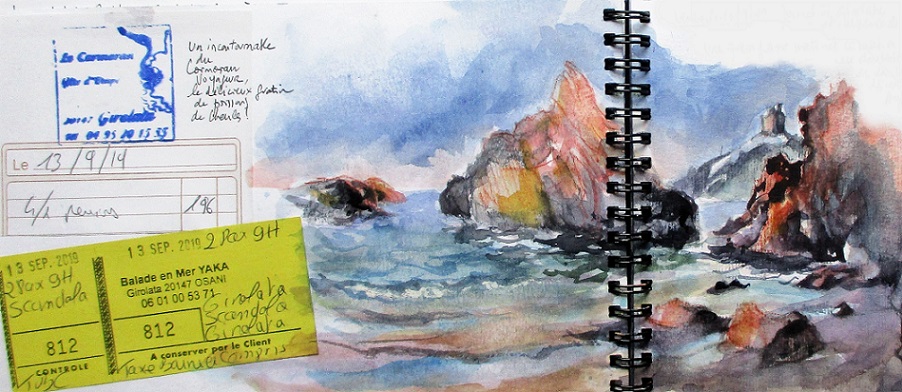 Le Cormoran
Gîte d'Etape
20147 Girolata
Un incontournable
du
Cormoran
Voyageur,
le délicieux gratin
de poisson
de Charles!
Le 13/9/14
196
13 SEP. 2019
2 Pax 9H
Scandola
812
CONTROLE
13 SEP. 2019 2 Pax 9H
Balade en Mer YAKA
Girolata 20147 OSANI
06 01 00 53 71
Girolata
Scandola
Girolata
812
A conserver par le Client
Taxe Barnier Compris